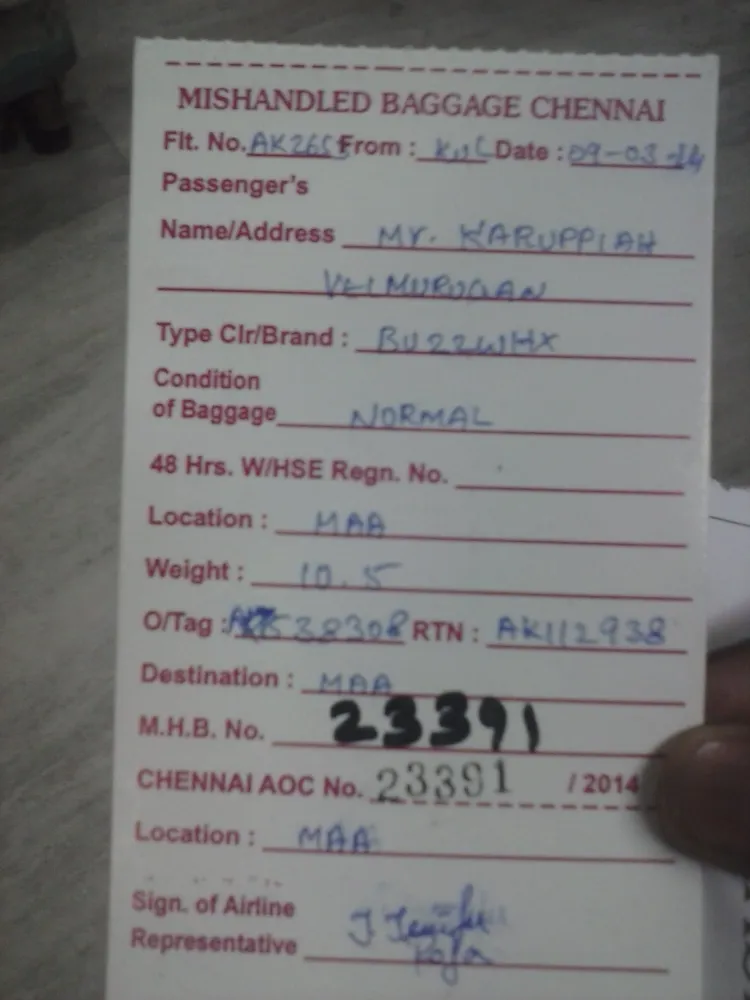 MISHANDLED BAGGAGE CHENNAI
Flt. No. AK265 From : KUL Date : 09-03-14
Passenger's
Name/Address Mr. KARUPPIAH
VELMURUGAN
Type Clr/Brand : BU22WHX
Condition
of Baggage NORMAL
48 Hrs. W/HSE Regn. No.
Location : MAA
Weight : 10.5
O/Tag : 538308 RTN : AK112938
Destination : MAA
M.H.B. No. 23391
CHENNAI AOC No. 23391 / 2014
Location : MAA
Sign. of Airline
Representative